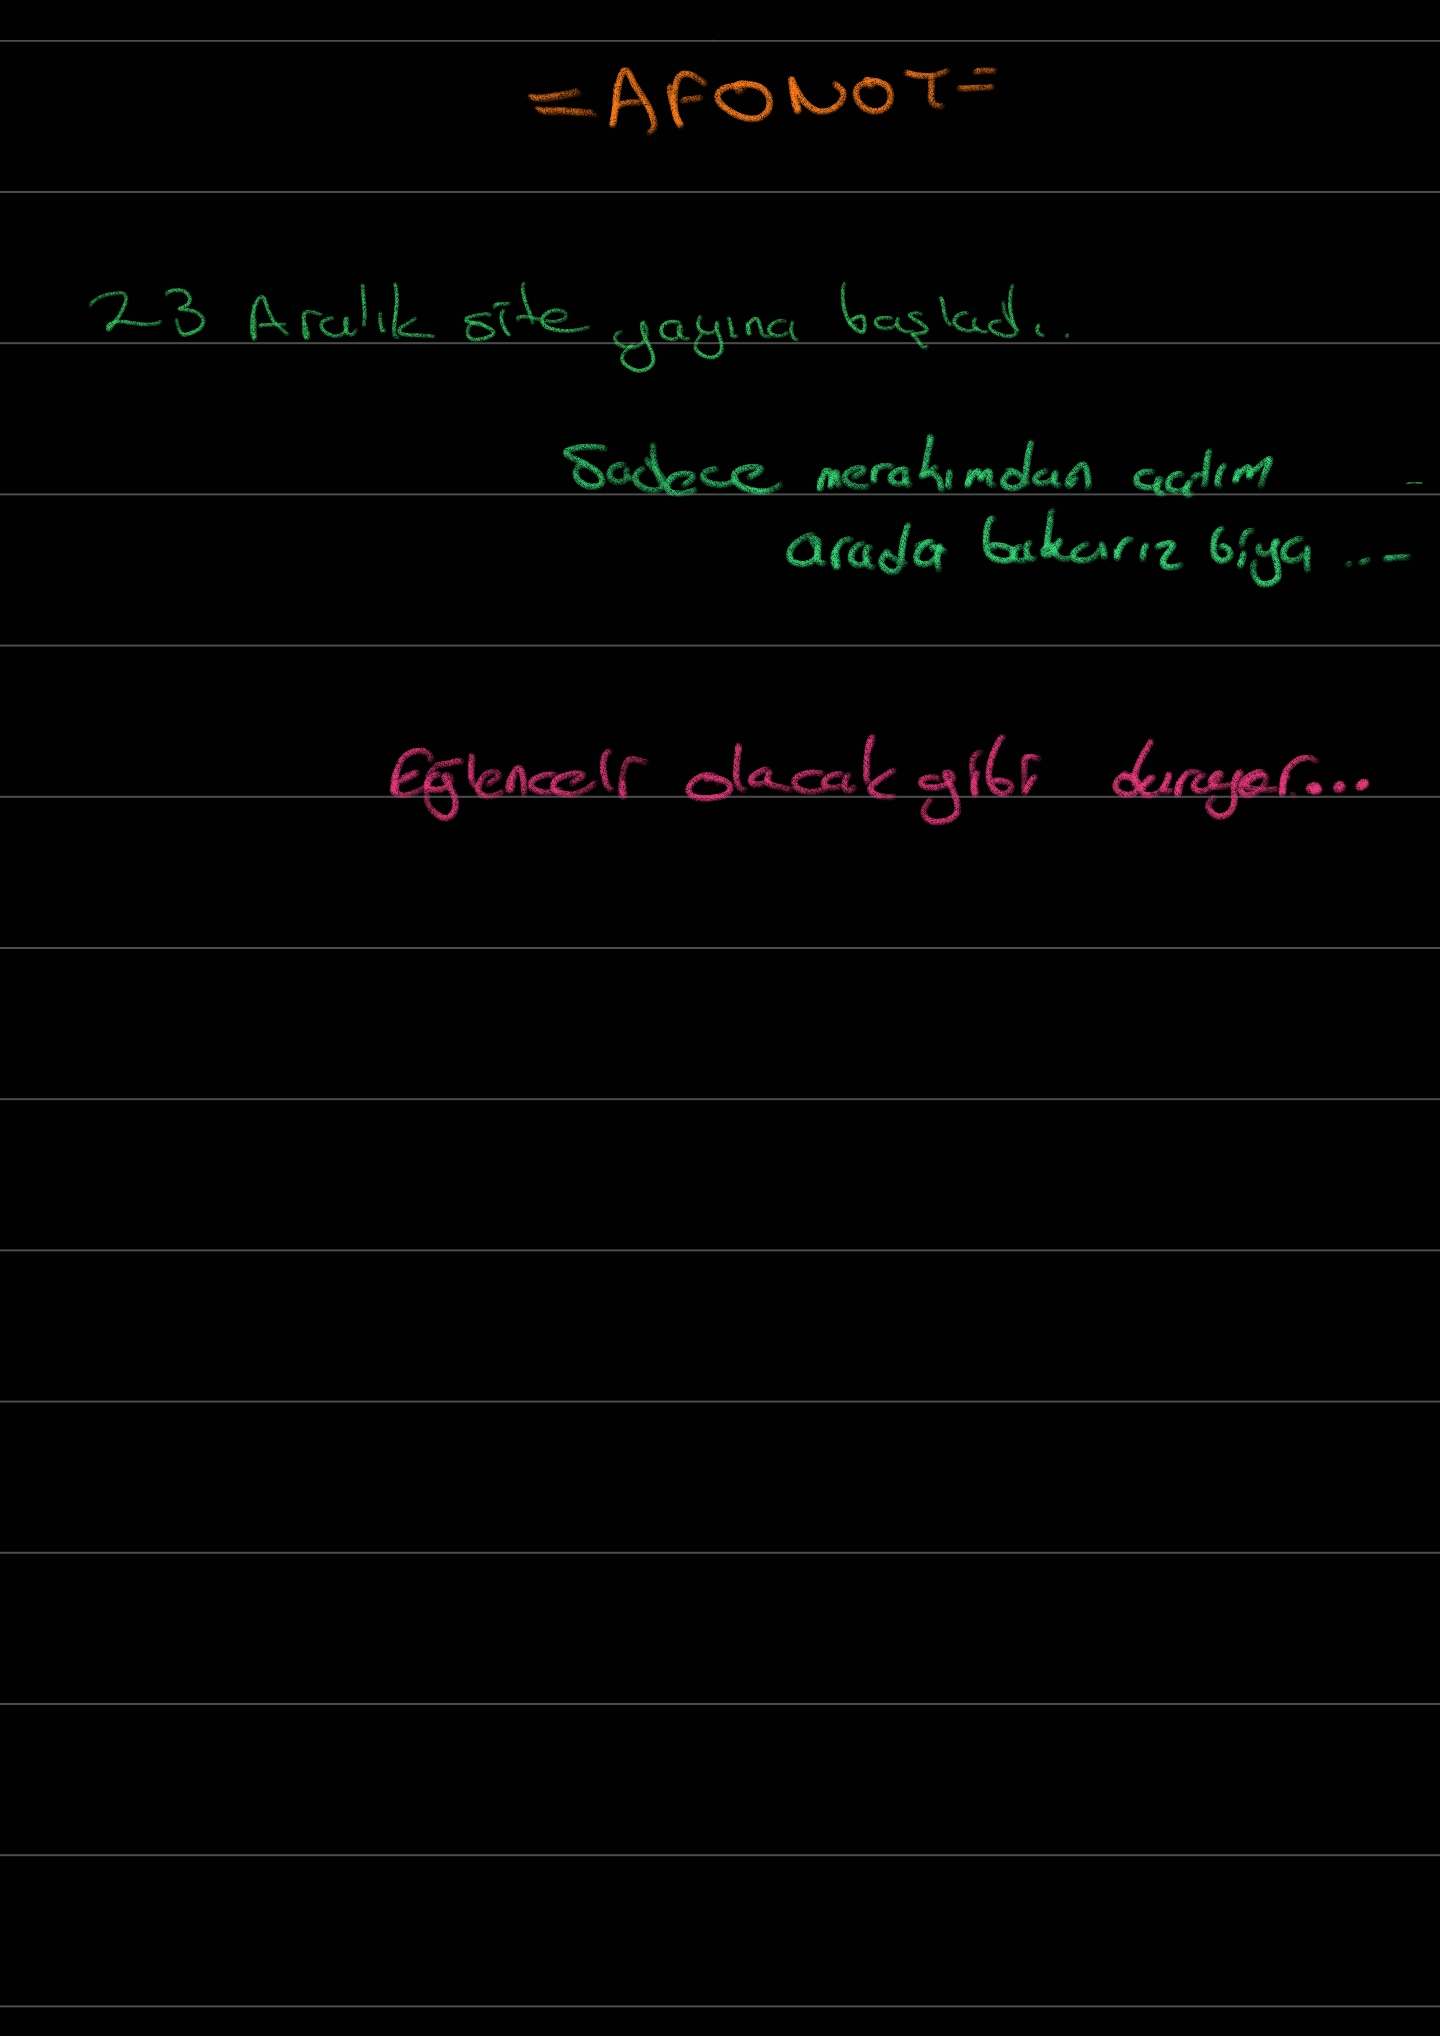 =AFONOT=
23 Aralık site yayına başladı..
Sadece merakımdan açtım -
arada bakarız biya ...-
Eğlenceli olacak gibi duruyor...